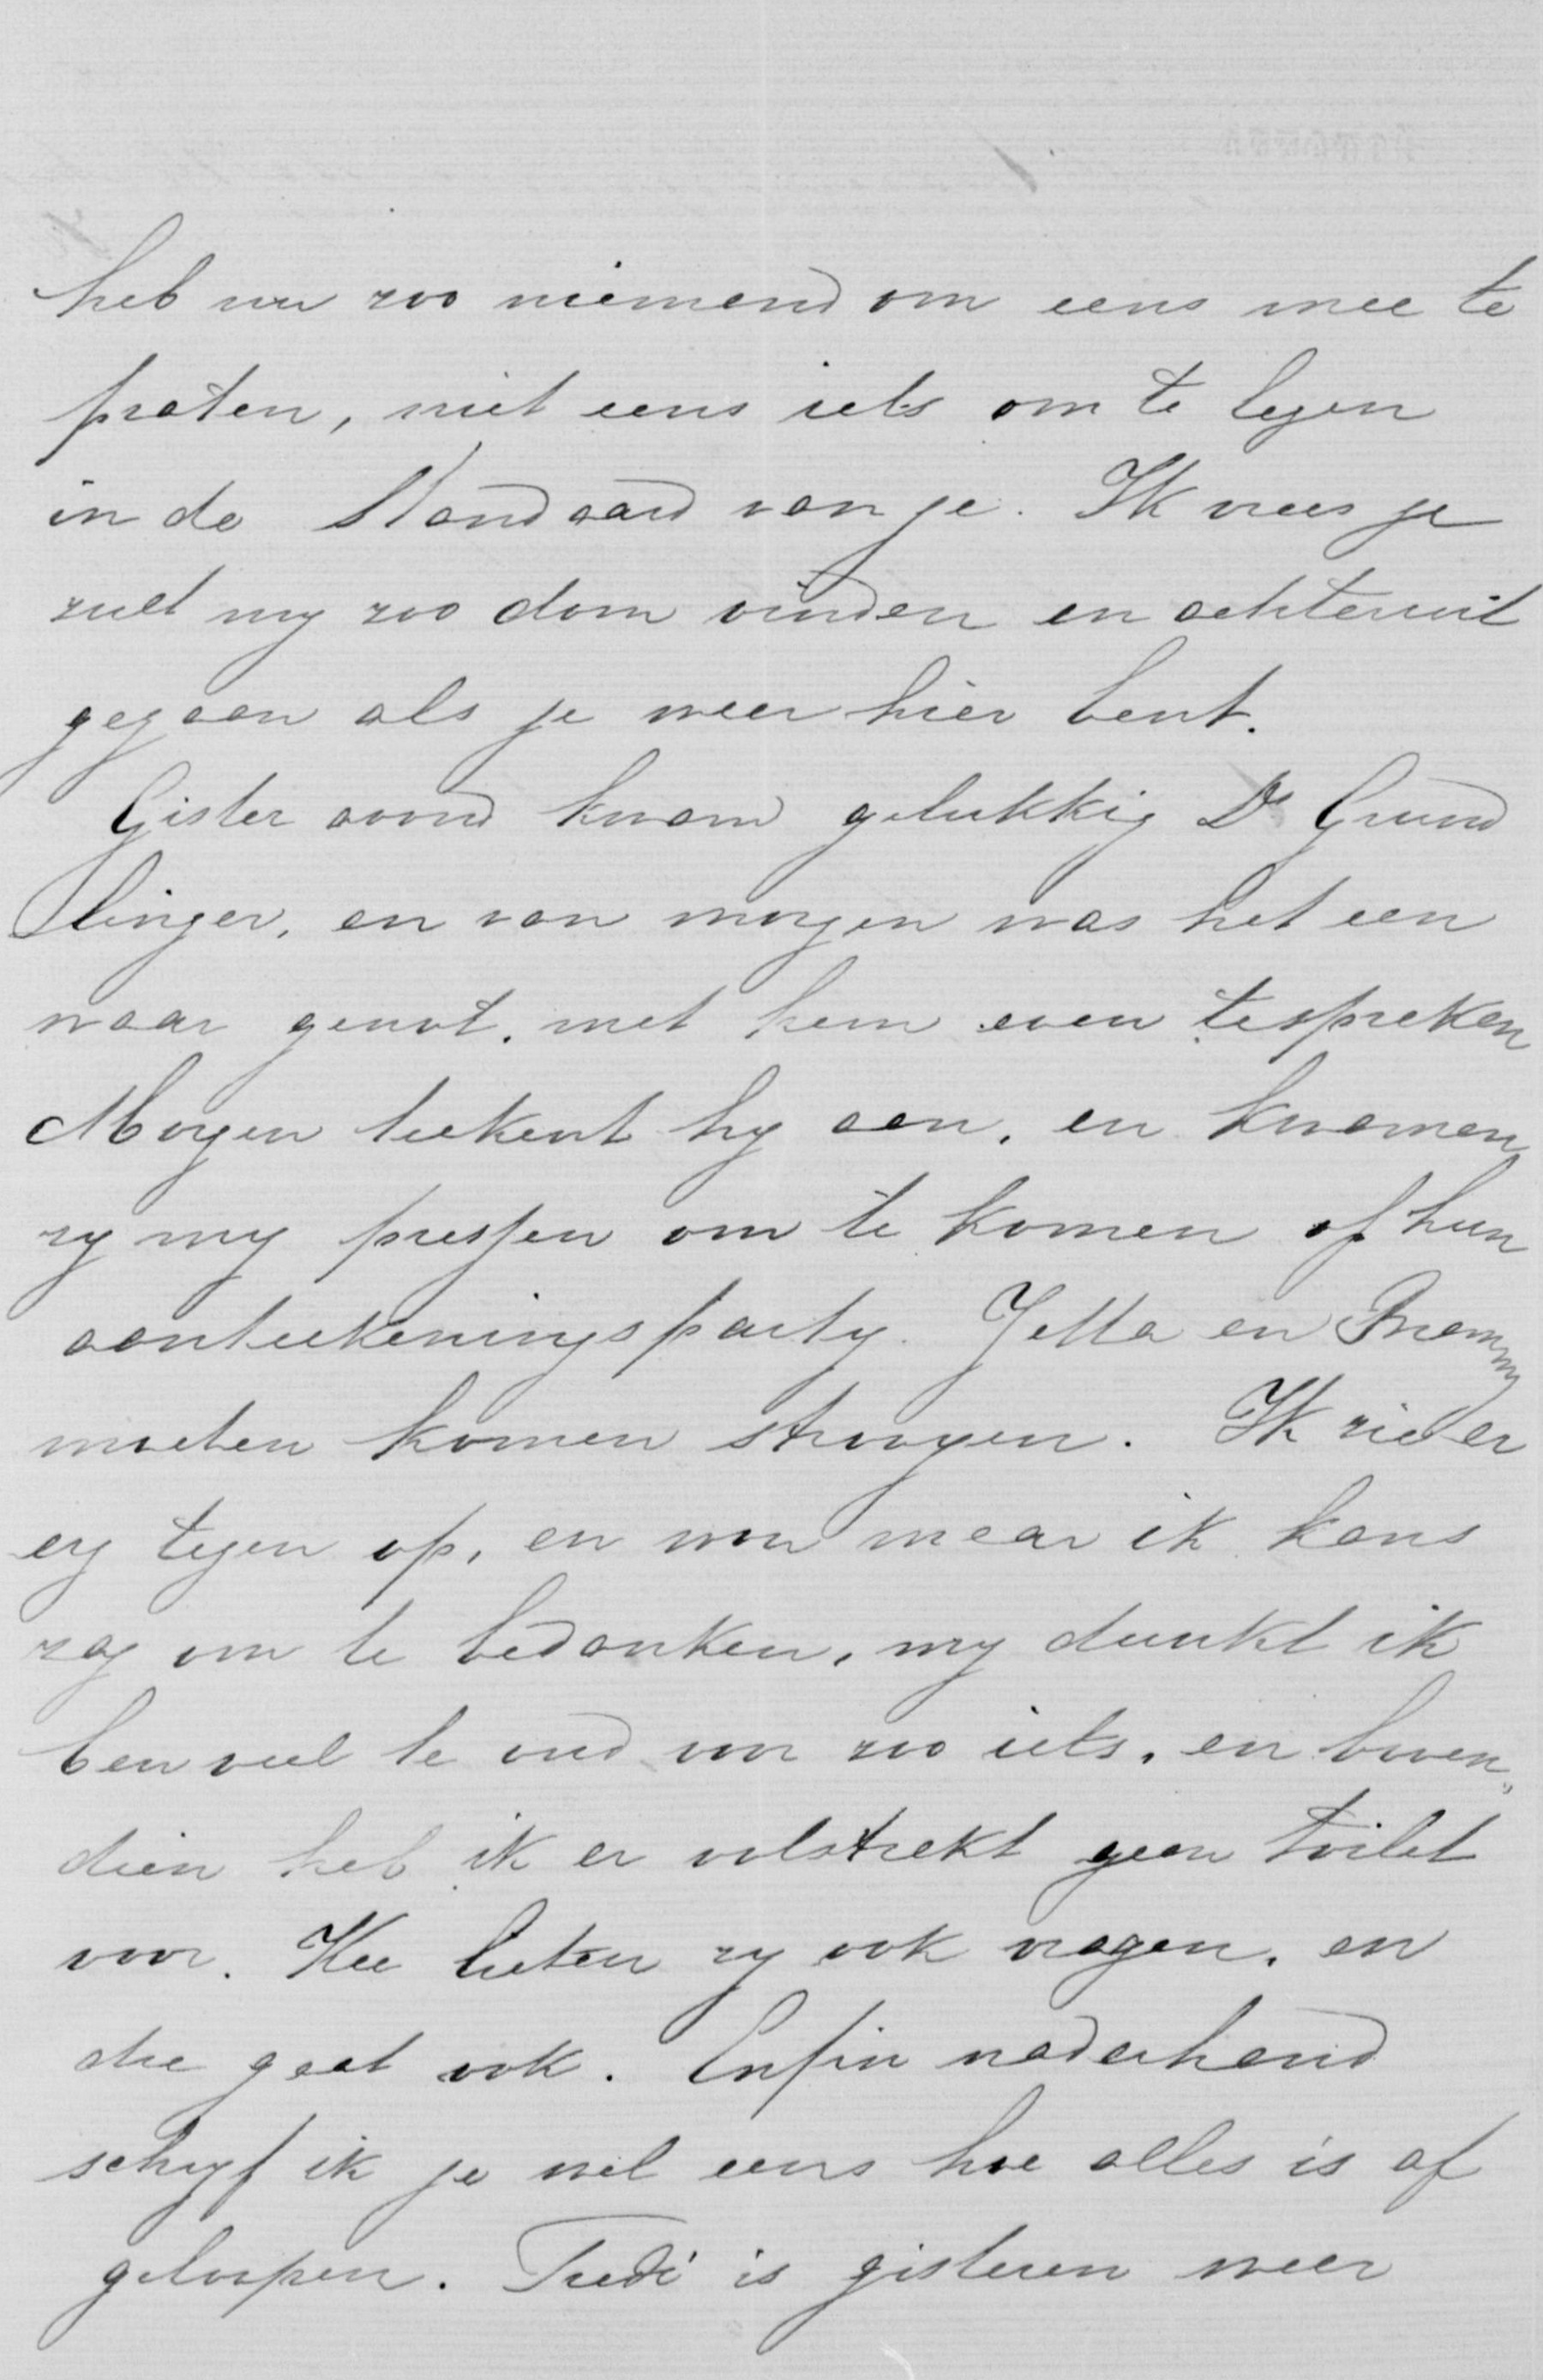 heb nu zoo niemand om eens mee te
praten, niet eens iets om te lezen
in de Standaard van je. Ik vrees je
zult my zoo dom vinden en achteruit
gegaan als je weer hier bent.
Gister avond kwam gelukkig Ds Grund
linger, en van morgen was het een
waar genot. met hem even te spreken
Morgen teekent hy aan, en kwamen
zy my pressen om te komen op hun
aanteekeningsparty. Jetta en Prammy
moeten komen strooyen. Ik zie er
erg tegen op, en wou maar ik kans
zag om te bedanken, my dunkt ik
ben veel te oud voor zoo iets, en boven„
dien heb ik er volstrekt geen toilet
voor. Kee lieten zy ook vragen, en
die gaat ook. Enfin naderhand
schryf ik je wel eens hoe alles is af
geloopen. Tredi is gisteren weer